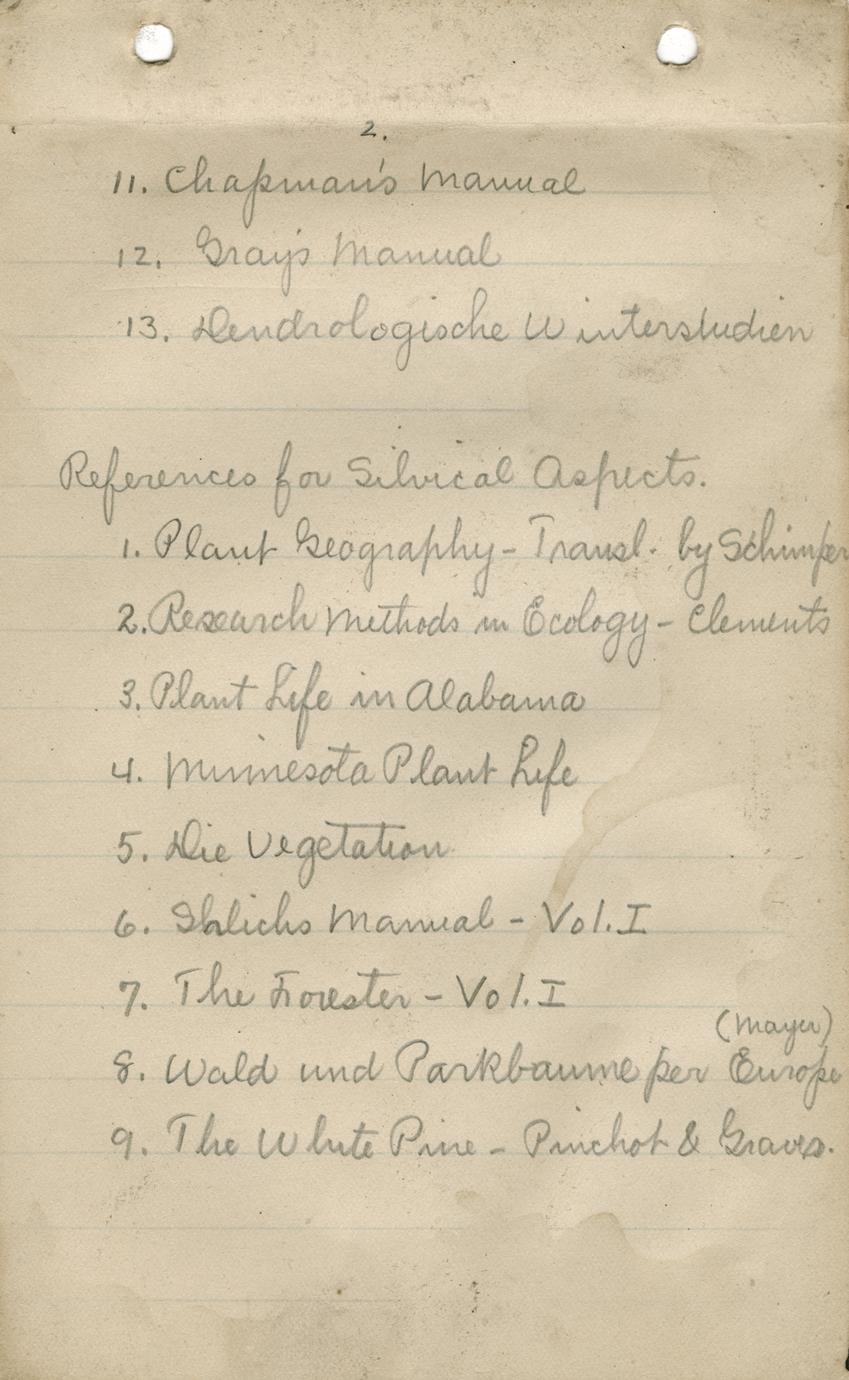 2.
11. Chapman's Manual
12. Gray's Manual
13. Dendrologische Winterstudien
References for Silvical Aspects.
1. Plant Geography - Transl. by Schimper
2. Research Methods in Ecology - Clements
3. Plant Life in Alabama
4. Minnesota Plant Life
5. Die Vegetation
6. Shlichs Manual - Vol. I
7. The Forester - Vol. I
(Mayer)
8. Wald und Parkbaume per Europe
9. The White Pine - Pinchot & Graves.